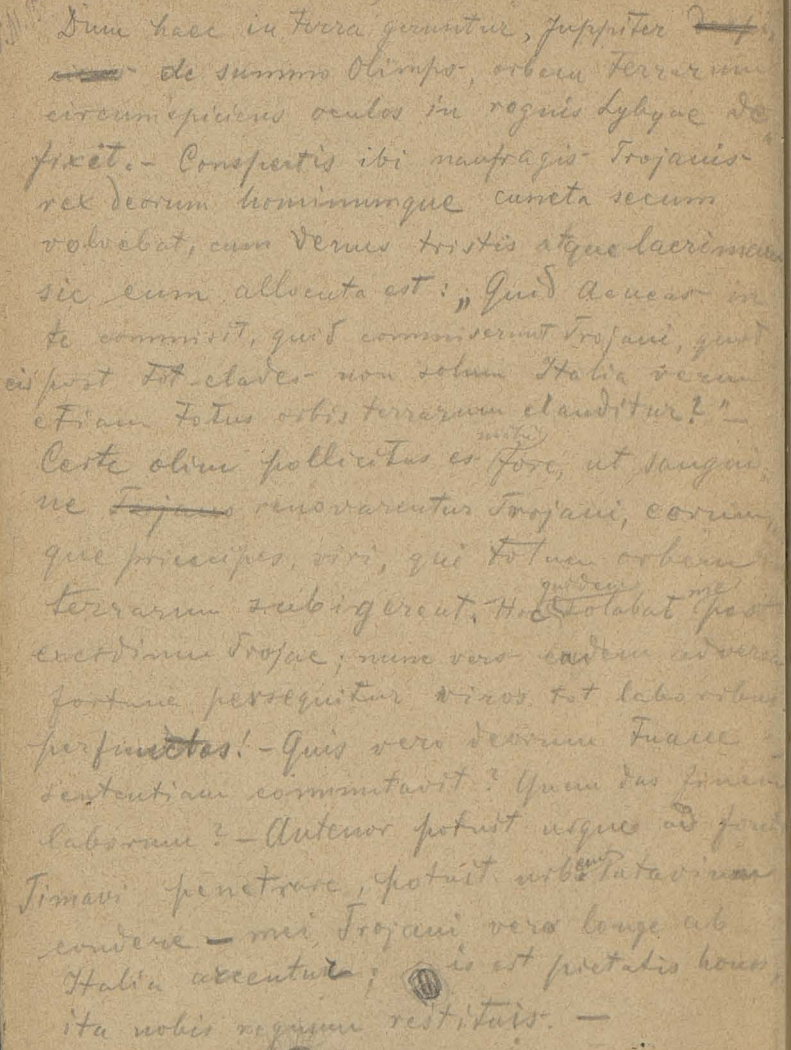 Dum haec in terra geruntur, Juppiter
de summo Olimpo, orbem terrarum
circumspiciens oculos in regnis Lybyae de
fixit. - Conspectis ibi naufragis Trojanis
rex deorum hominumque cuncta secum
volvebat, cum Venus tristis atque lacrimans
sic eum allocuta est: „Quid Aeneas in
te commisit, quid commiserunt Trojani, quod
eis post tot clades non solum Italia verum
etiam totus orbis terrarum clauditur?" -
Certe olim pollicitus es mihi fore, ut sangui-
ne renovarentur Trojani, eorum-
que principes, viri, qui totum orbem
terrarum subigerent. Hoc quidem solabat me post
excidium Trojae; nunc vero eadem adversa
fortuna persequitur viros tot laboribus
perfunctos! - Quis vero deorum tuam
sententiam commutavit? Quem das finem
laborum? - Antenor potuit usque ad
Timavi penetrare, potuit urbem Patavinam
condere - mei Trojani vero longe ab
Italia arcentur; is est pietatis honos,
ita nobis regnum restituis. -